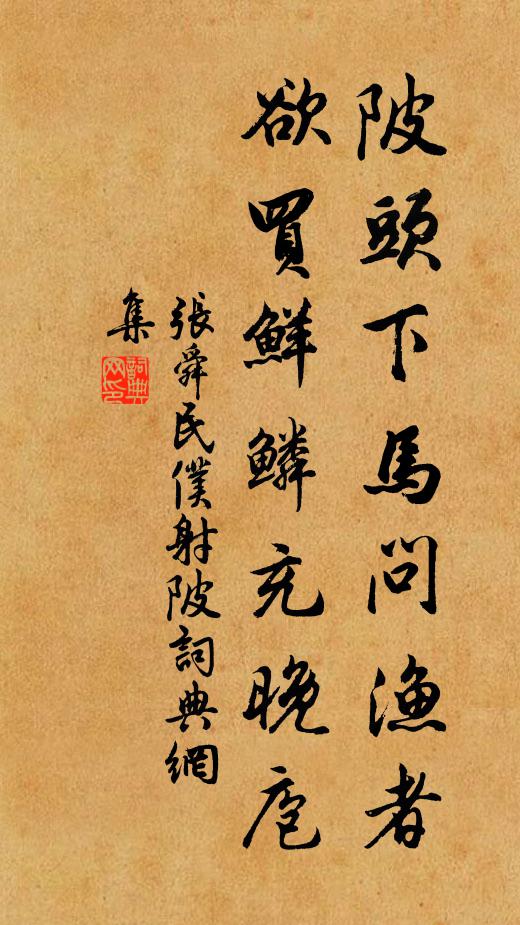 陂頭下馬問漁者
欲買鮮鱗充晚庖
張舜民僕射陂詞典網
集
詞典
网印